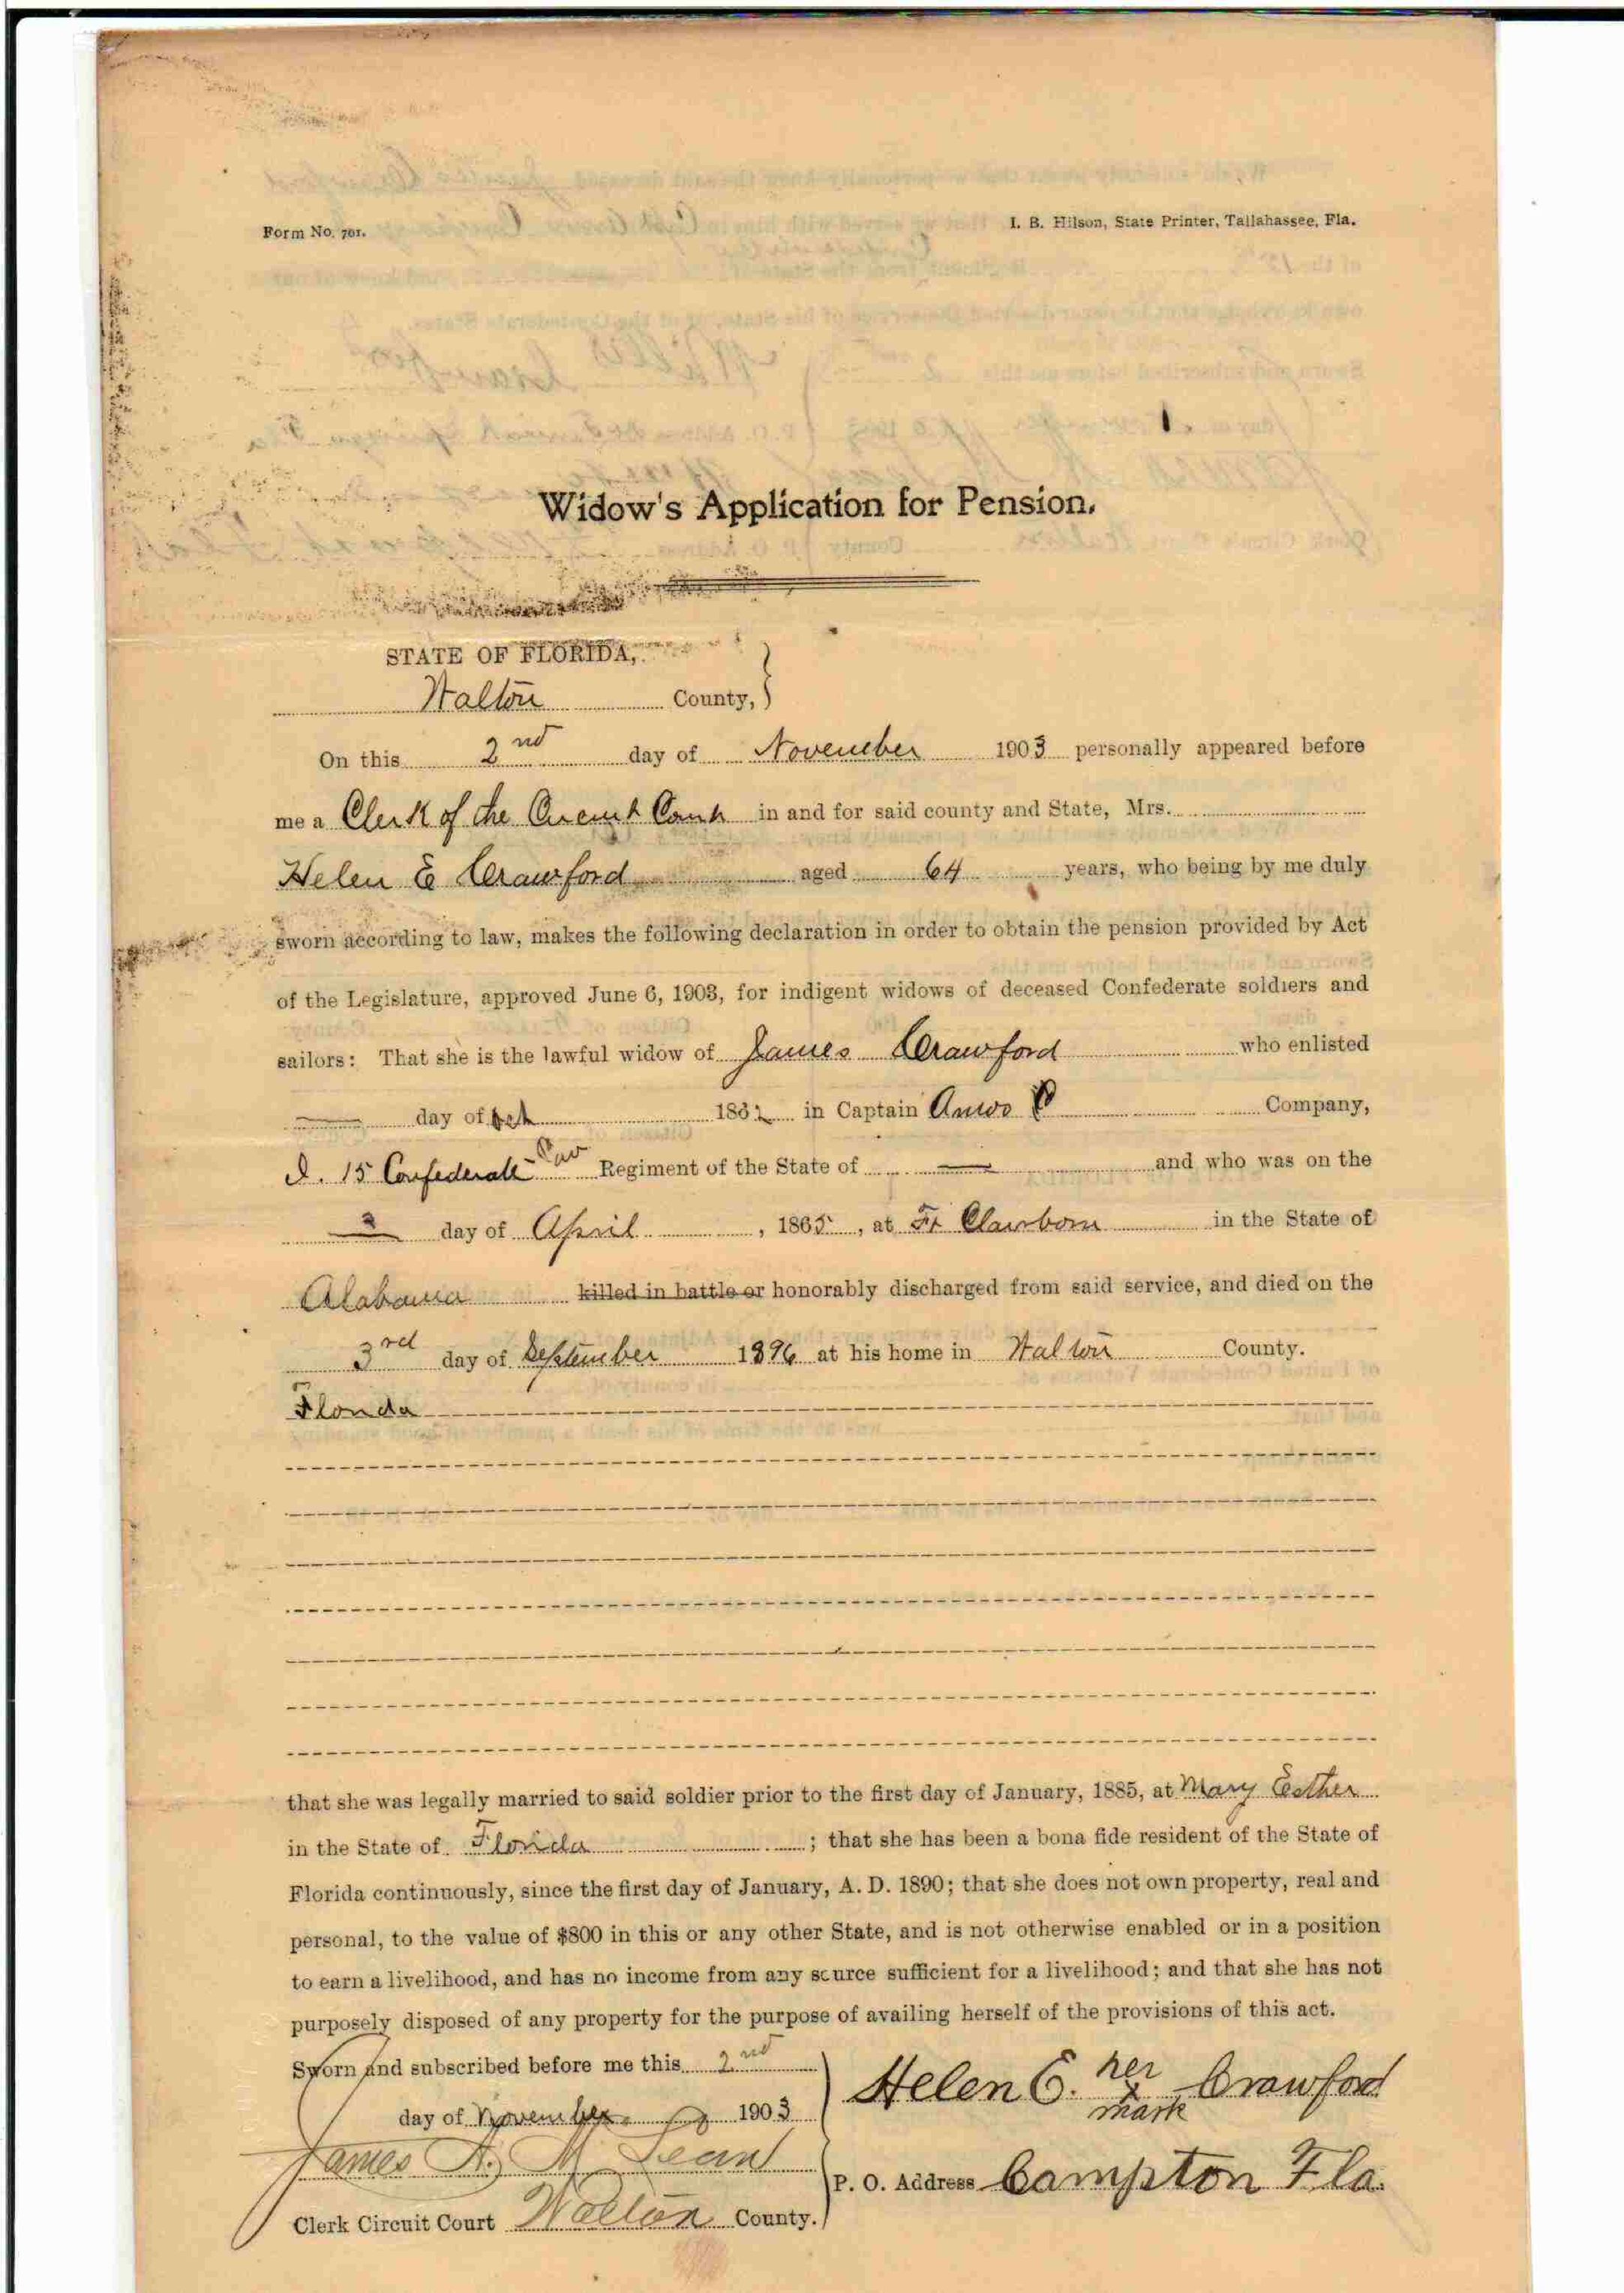 Form No. 701.
I. B. Hilson, State Printer, Tallahassee, Fla.
Widow's Application for Pension.
STATE OF FLORIDA,
Walton County,
On this 2nd day of November 1903 personally appeared before
me a Clerk of the Circuit Court in and for said county and State, Mrs.
Helen E Crawford aged 64 years, who being by me duly
sworn according to law, makes the following declaration in order to obtain the pension provided by Act
of the Legislature, approved June 6, 1903, for indigent widows of deceased Confederate soldiers and
sailors: That she is the lawful widow of James Crawford who enlisted
— day of Oct 1862 in Captain Amos Company,
I. 15 Confederate Cav Regiment of the State of — and who was on the
day of April, 1865, at Ft Clairborn in the State of
Alabama killed in battle or honorably discharged from said service, and died on the
3rd day of September 1896 at his home in Walton County.
Florida
that she was legally married to said soldier prior to the first day of January, 1885, at Mary Esther
in the State of Florida; that she has been a bona fide resident of the State of
Florida continuously, since the first day of January, A. D. 1890; that she does not own property, real and
personal, to the value of $800 in this or any other State, and is not otherwise enabled or in a position
to earn a livelihood, and has no income from any source sufficient for a livelihood; and that she has not
purposely disposed of any property for the purpose of availing herself of the provisions of this act.
Sworn and subscribed before me this 2nd
day of November 1903
James A. McLean
Clerk Circuit Court Walton County.
Helen E. her x mark Crawford
P. O. Address Campton Fla.